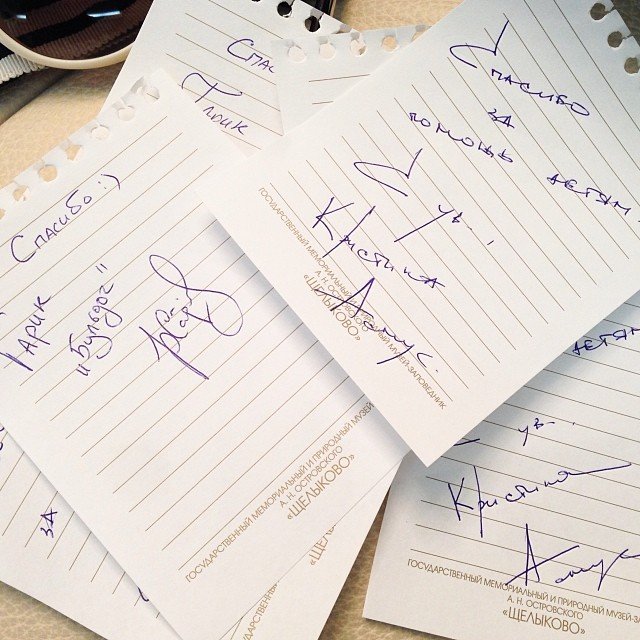 Спасибо :)
Гарик
"Бульдог"
ГОСУДАРСТВЕННЫЙ МЕМОРИАЛЬНЫЙ И ПРИРОДНЫЙ МУЗЕЙ-
А. Н. ОСТРОВСКОГО
«ЩЕЛЫКОВО»
Спас
Гарик
Спасибо
за
помощь детям.
С ув.,
Кристина
ГОСУДАРСТВЕННЫЙ МЕМОРИАЛЬНЫЙ И ПРИРОДНЫЙ МУЗЕЙ-ЗАПОВЕДНИК
А. Н. ОСТРОВСКОГО
«ЩЕЛЫКОВО»
детям
ув.,
Кристина
ГОСУДАРСТВЕННЫЙ МЕМОРИАЛЬНЫЙ И ПРИРОДНЫЙ МУЗЕЙ-З
А. Н. ОСТРОВСКОГО
«ЩЕЛЫКОВО»
за
«ЩЕЛЫ